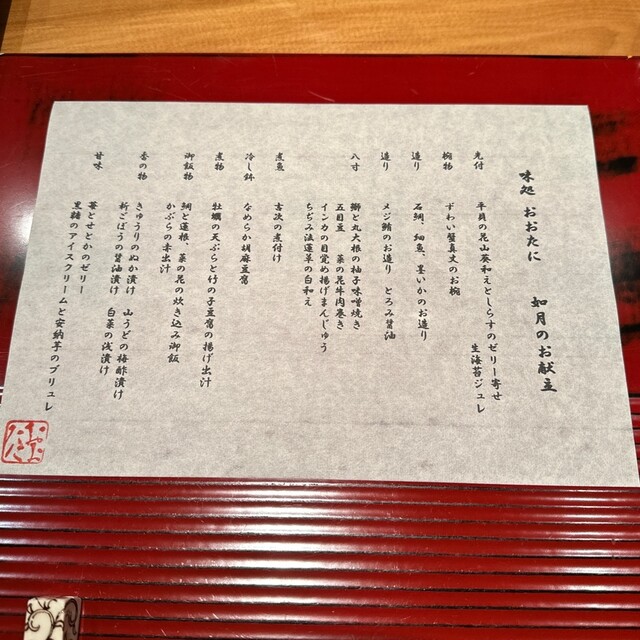 味処 おおたに 如月のお献立
先付 平貝の花山葵和えとしらすのゼリー寄せ
生海苔ジュレ
椀物 ずわい蟹真丈のお椀
造り 石鯛、細魚、墨いかのお造り
造り メジ鮪のお造り とろみ醤油
八寸 鰤と丸大根の柚子味噌焼き
五目豆 菜の花牛肉巻き
インカの目覚め揚げまんじゅう
ちぢみ法蓮草の白和え
煮魚 吉次の煮付け
冷し鉢 なめらか胡麻豆腐
煮物 牡蠣の天ぷらと竹の子豆腐の揚げ出汁
御飯物 鯛と蓮根、菜の花の炊き込み御飯
かぶらの赤出汁
香の物 きゅうりのぬか漬け 山うどの梅酢漬け
新ごぼうの醤油漬け 白菜の浅漬け
甘味 苺とせとかのゼリー
黒糖のアイスクリームと安納芋のブリュレ